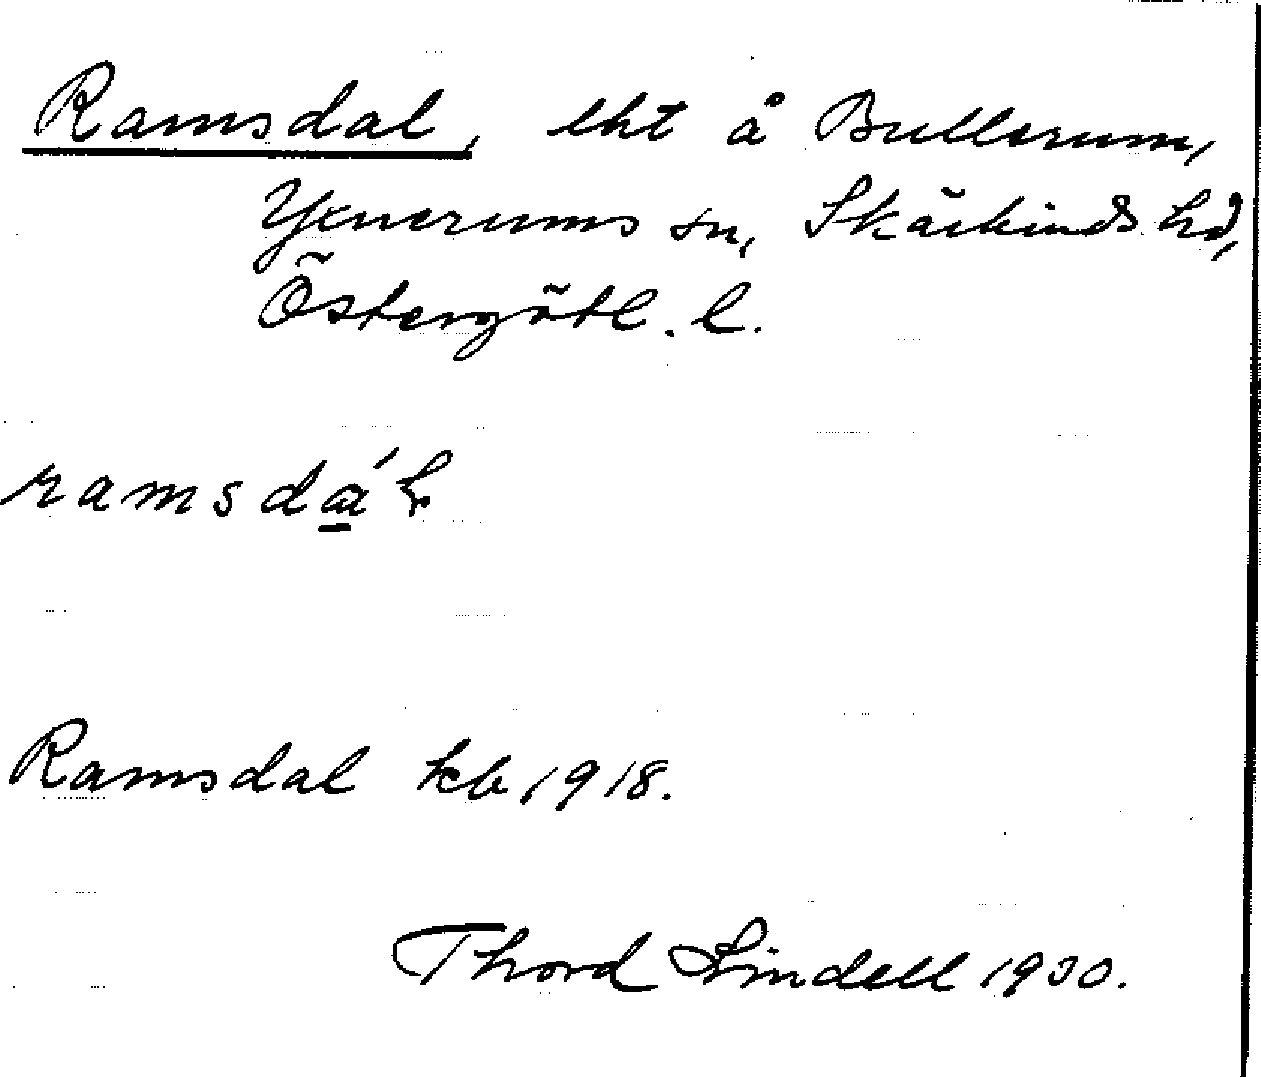 Ramsdal, lht å Bullerum,
Yxnerums sn, Skärkinds hd,
Östergötl. l.
ramsdá
Ramsdal kb 1918.
Thord Lindell 1930.